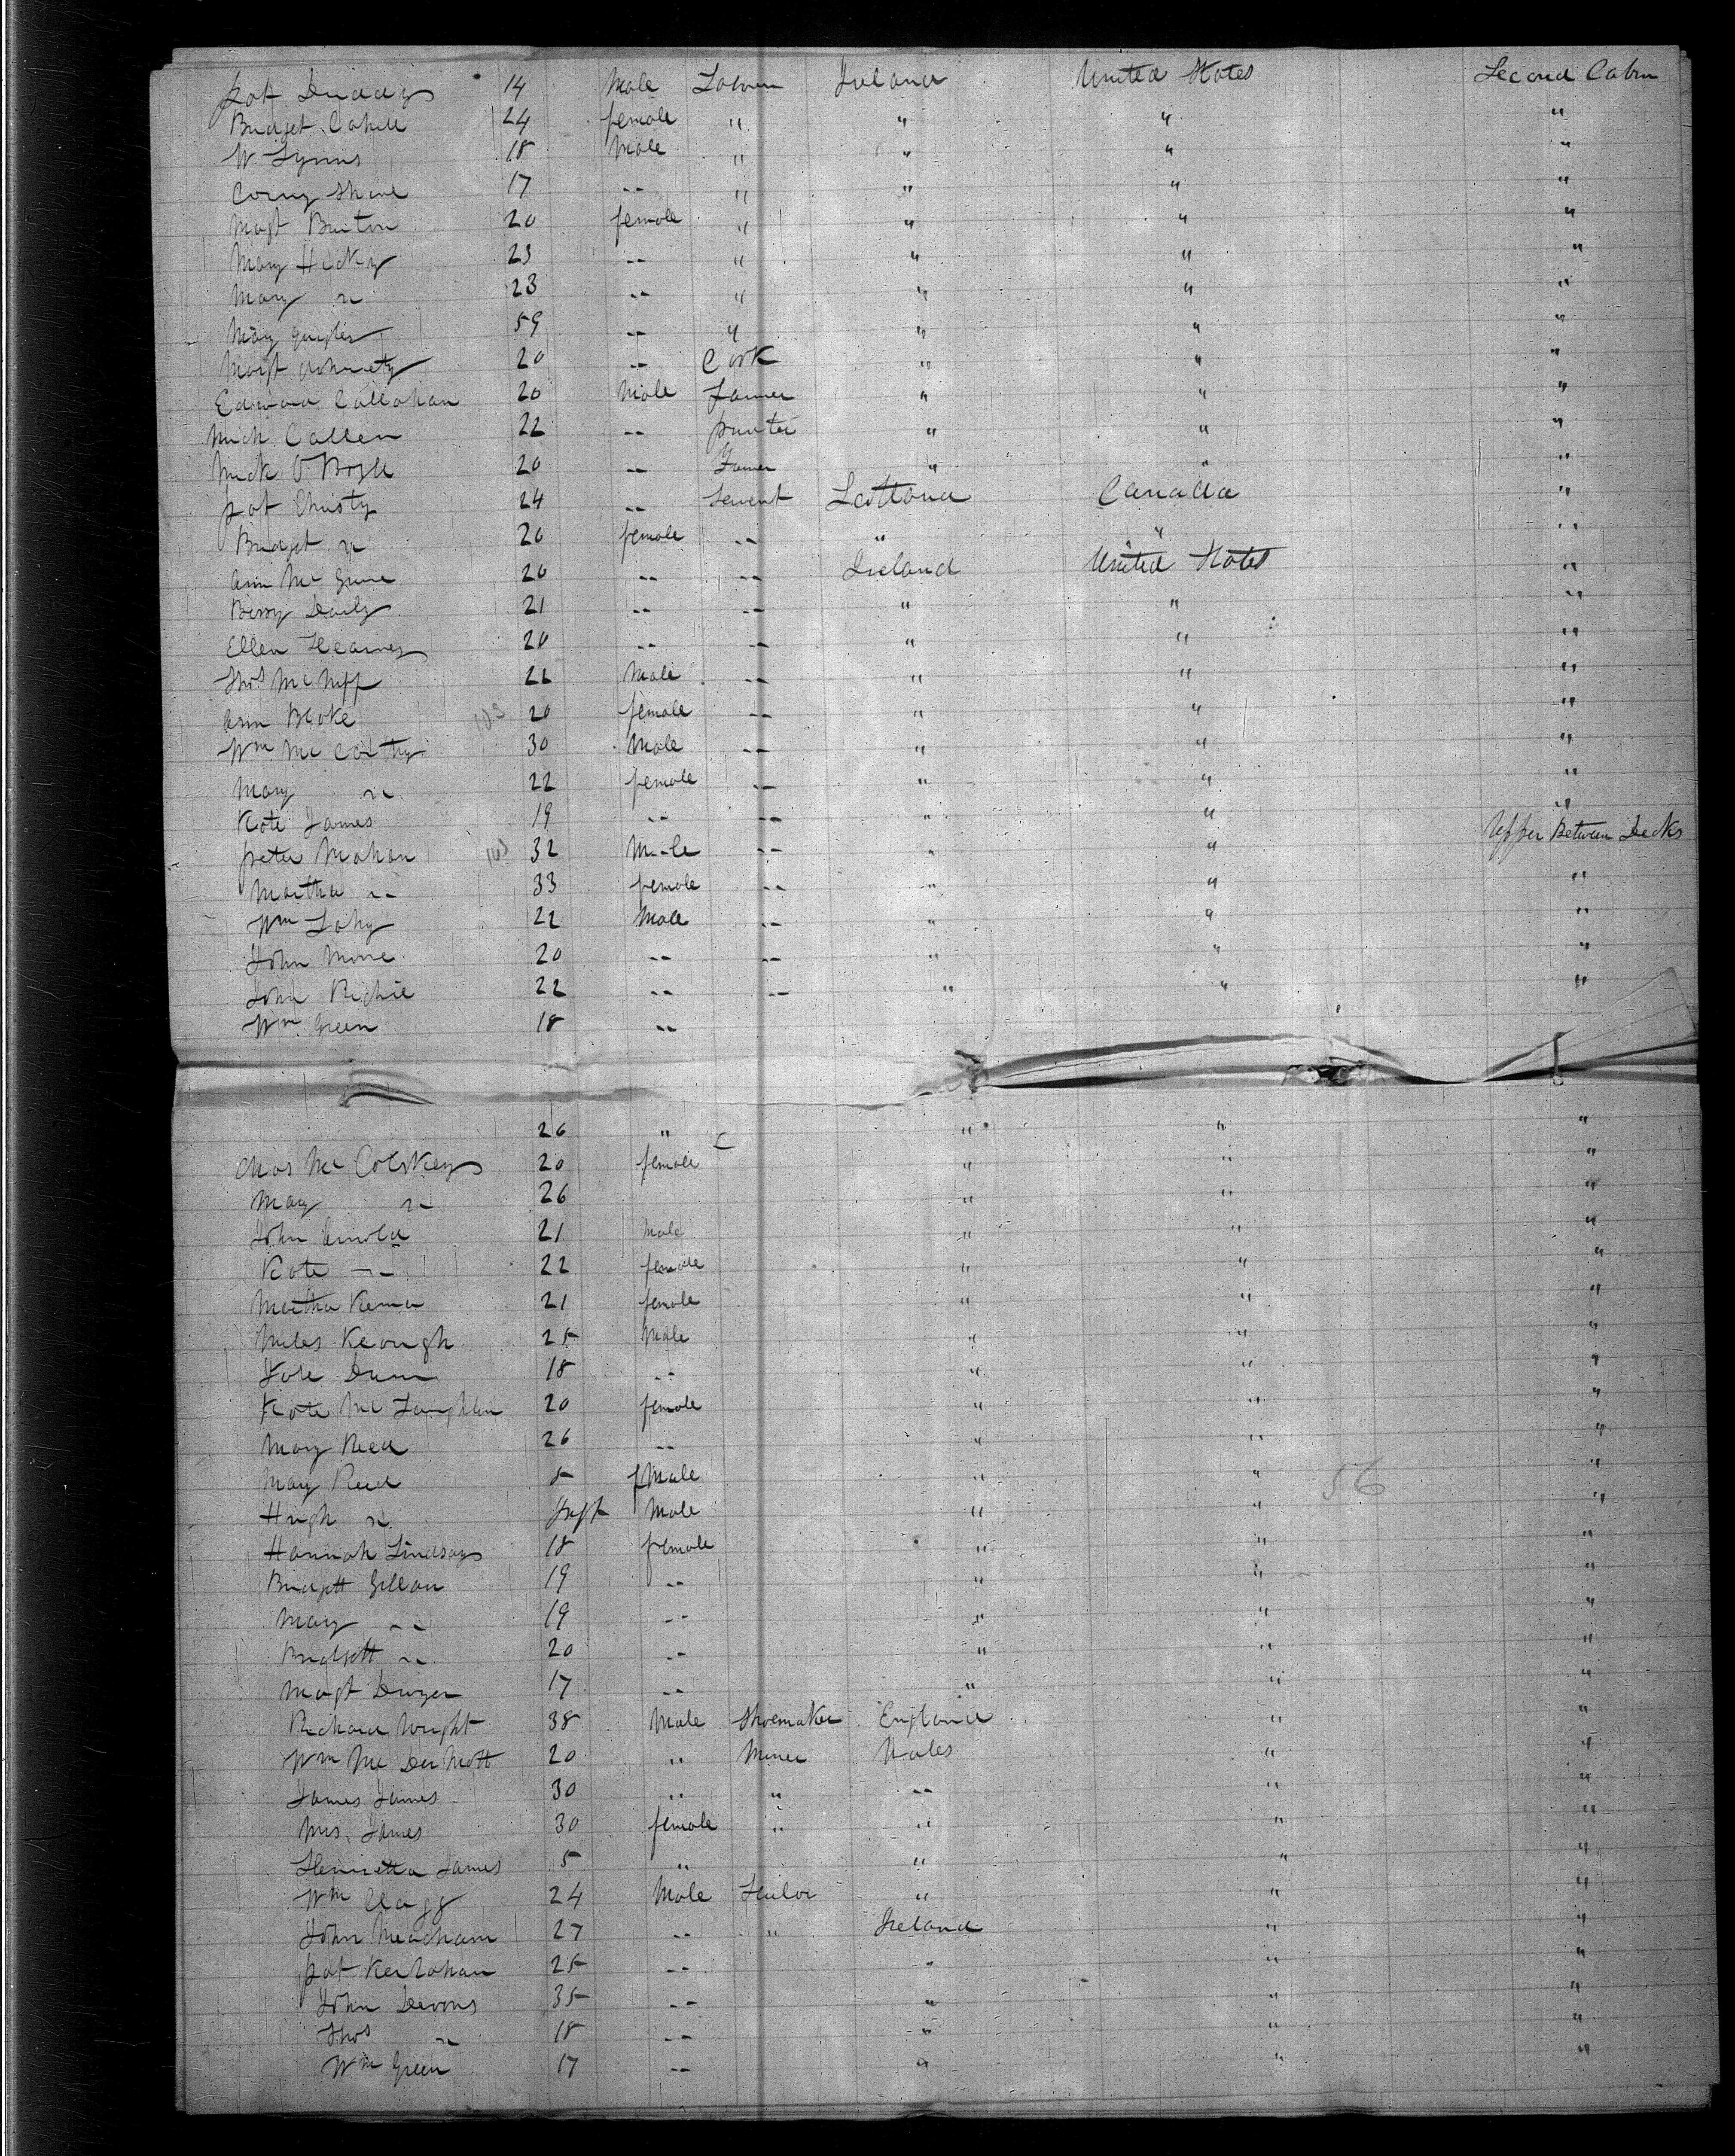 Pat Duddy 14 Male Laborer Ireland United States Second Cabin
Bridget Cahill 24 female " " " "
W Lyons 18 Male " " " "
Corny Shine 17 -- " " " "
Magt Burton 20 female " " " "
Mary Hicky 23 -- " " " "
Mary " 23 -- " " " "
Mary Quigley 59 -- " " " "
Margt 20 -- Cook " " "
Edward Callahan 20 Male Farmer " " "
Mich Callen 22 -- printer " " "
Mick O Boyle 20 -- Farmer " " "
Pat Christy 24 -- Servent Scotland Canada "
Bridget " 20 female -- " " "
Ann Mc 20 -- -- Ireland United States "
Bessy Daily 21 -- -- " " "
Ellen Kearney 20 -- -- " " "
Thos Mc Niff 22 Male -- " " "
Ann Blake 20 female -- " " "
Wm Mc Carthy 30 Male -- " " "
Mary " 22 female -- " " "
Kate James 19 -- -- " " "
Peter Mahan 32 Male -- " " Upper Between Decks
Martha " 33 female -- " " "
Wm Lahy 22 Male -- " " "
John Moore 20 -- -- " " "
John Richie 22 -- -- " " "
Wm Green 18 --
26 " " " "
Chas Mc Coskey 20 female " " "
Mary " 26 " " "
John Arnold 21 male " " "
Kate " 22 female " " "
Martha 21 female " " "
Miles Keough 25 Male " " "
Dunn 18 -- " " "
Kate Mc Laughlin 20 female " " "
Mary Reed 26 -- " " "
Mary Reed 5 fMale " " " 56
Hugh " Inft Male " " "
Hannah Lindsay 18 female " " "
Bridgett Gillan 19 -- " " "
Mary " 19 -- " " "
Bridgett " 20 -- " " "
Magt Dwyer 17 -- " " "
Richard Wright 38 Male Shoemaker England " "
Wm Mc Der Mott 20 " Miner Wales " "
James James 30 " " -- " "
Mrs. James 30 female " " " "
Henrietta James 5 " " " "
Wm Clagg 24 Male Sailor " " "
John Meacham 27 -- " Ireland " "
Pat Kerlahan 25 -- " " "
John Devons 35 -- " " "
Thos " 18 -- " " "
Wm Green 17 -- " " "